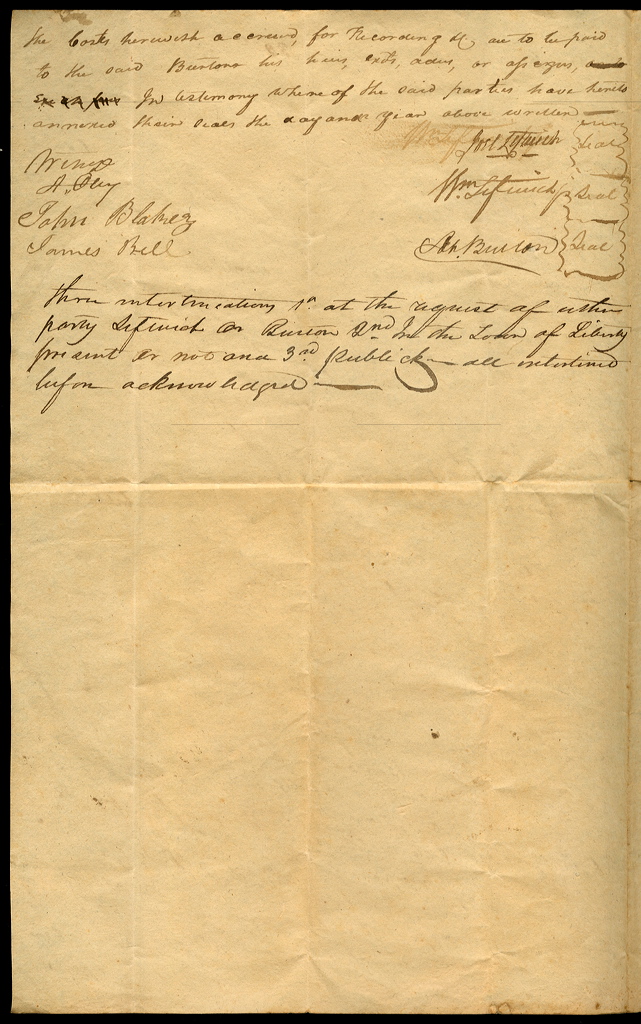 the Costs herewith accrued, for Recording &c are to be paid
to the said Burton his heirs, exts, adm, or assigns,
In testimony where of the said parties have hereto
annexed their seals the day and year above written
Josl Leftwich Seal
Witness
A. Clay
Wm Leftwich Seal
John Blakey
James Bell
Burton Seal
three interlineations 1st at the request of either
party Leftwich or Burton 2nd In the Town of Liberty
present or not and 3rd publick all interlined
before acknowledged